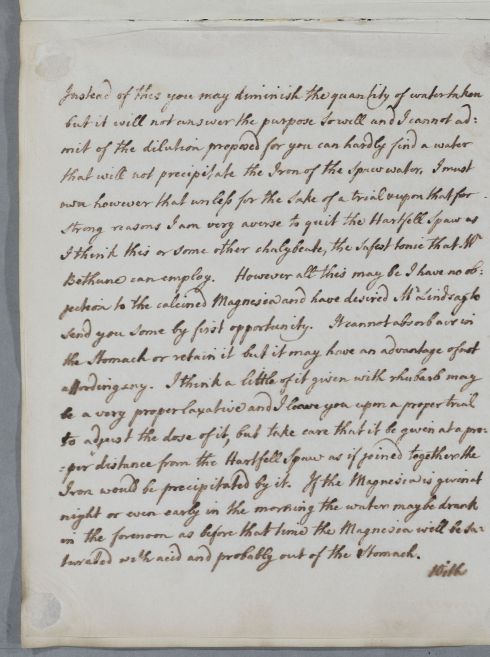 Instead of this you may diminish the quantity of water taken
but it will not answer the purpose so well and I cannot ad:
mit of the dilution proposed for you can hardly find a water
that will not precipitate the Iron of the Spaw water. I must
own however that unless for the sake of a trial & upon that for
strong reasons I am very averse to quit the Hartfell Spaw as
I think this or some other chalybeate, the safest tonic that Mr
Bethune can employ. However all this may be I have no ob:
jection to the calcined Magnesia and have desired Mr Lindsay to
send you some by first opportunity. It cannot absorb air in
the Stomach or retain it but it may have an advantage of not
affording any. I think a little of it given with rhubarb may
be a very proper laxative and I leave you upon a proper trial
to adjust the dose of it, but take care that it be given at a pro:
:per distance from the Hartfell Spaw as if joined together the
Iron would be precipitated by it. If the Magnesia is given at
night or even early in the morning the water may be drank
in the forenoon as before that time the Magnesia will be sa:
turated with acid and probably out of the Stomach.
With